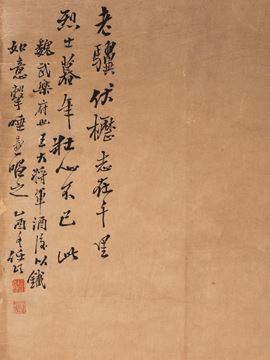 老驥伏櫪志在千里
烈士暮年壯心不已此
魏武樂府也王大將軍酒後以鐵
如意擊唾壺之 乙酉冬任